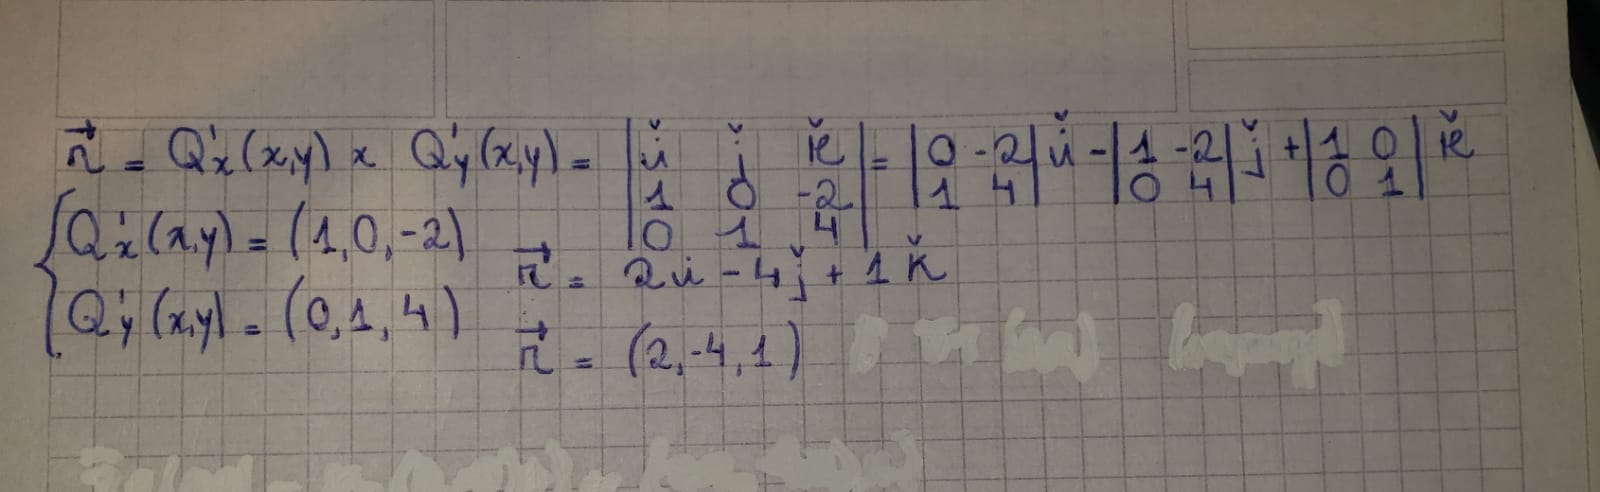 n⃗ = Q'x(x,y) x Q'y(x,y) = |ǐ ǰ ǩ; 1 0 -2; 0 1 4| = |0 -2; 1 4| ǐ - |1 -2; 0 4| ǰ + |1 0; 0 1| ǩ
{ Q'x(x,y) = (1,0,-2)
Q'y(x,y) = (0,1,4)
n⃗ = 2i - 4ǰ + 1ǩ
n⃗ = (2,-4,1)